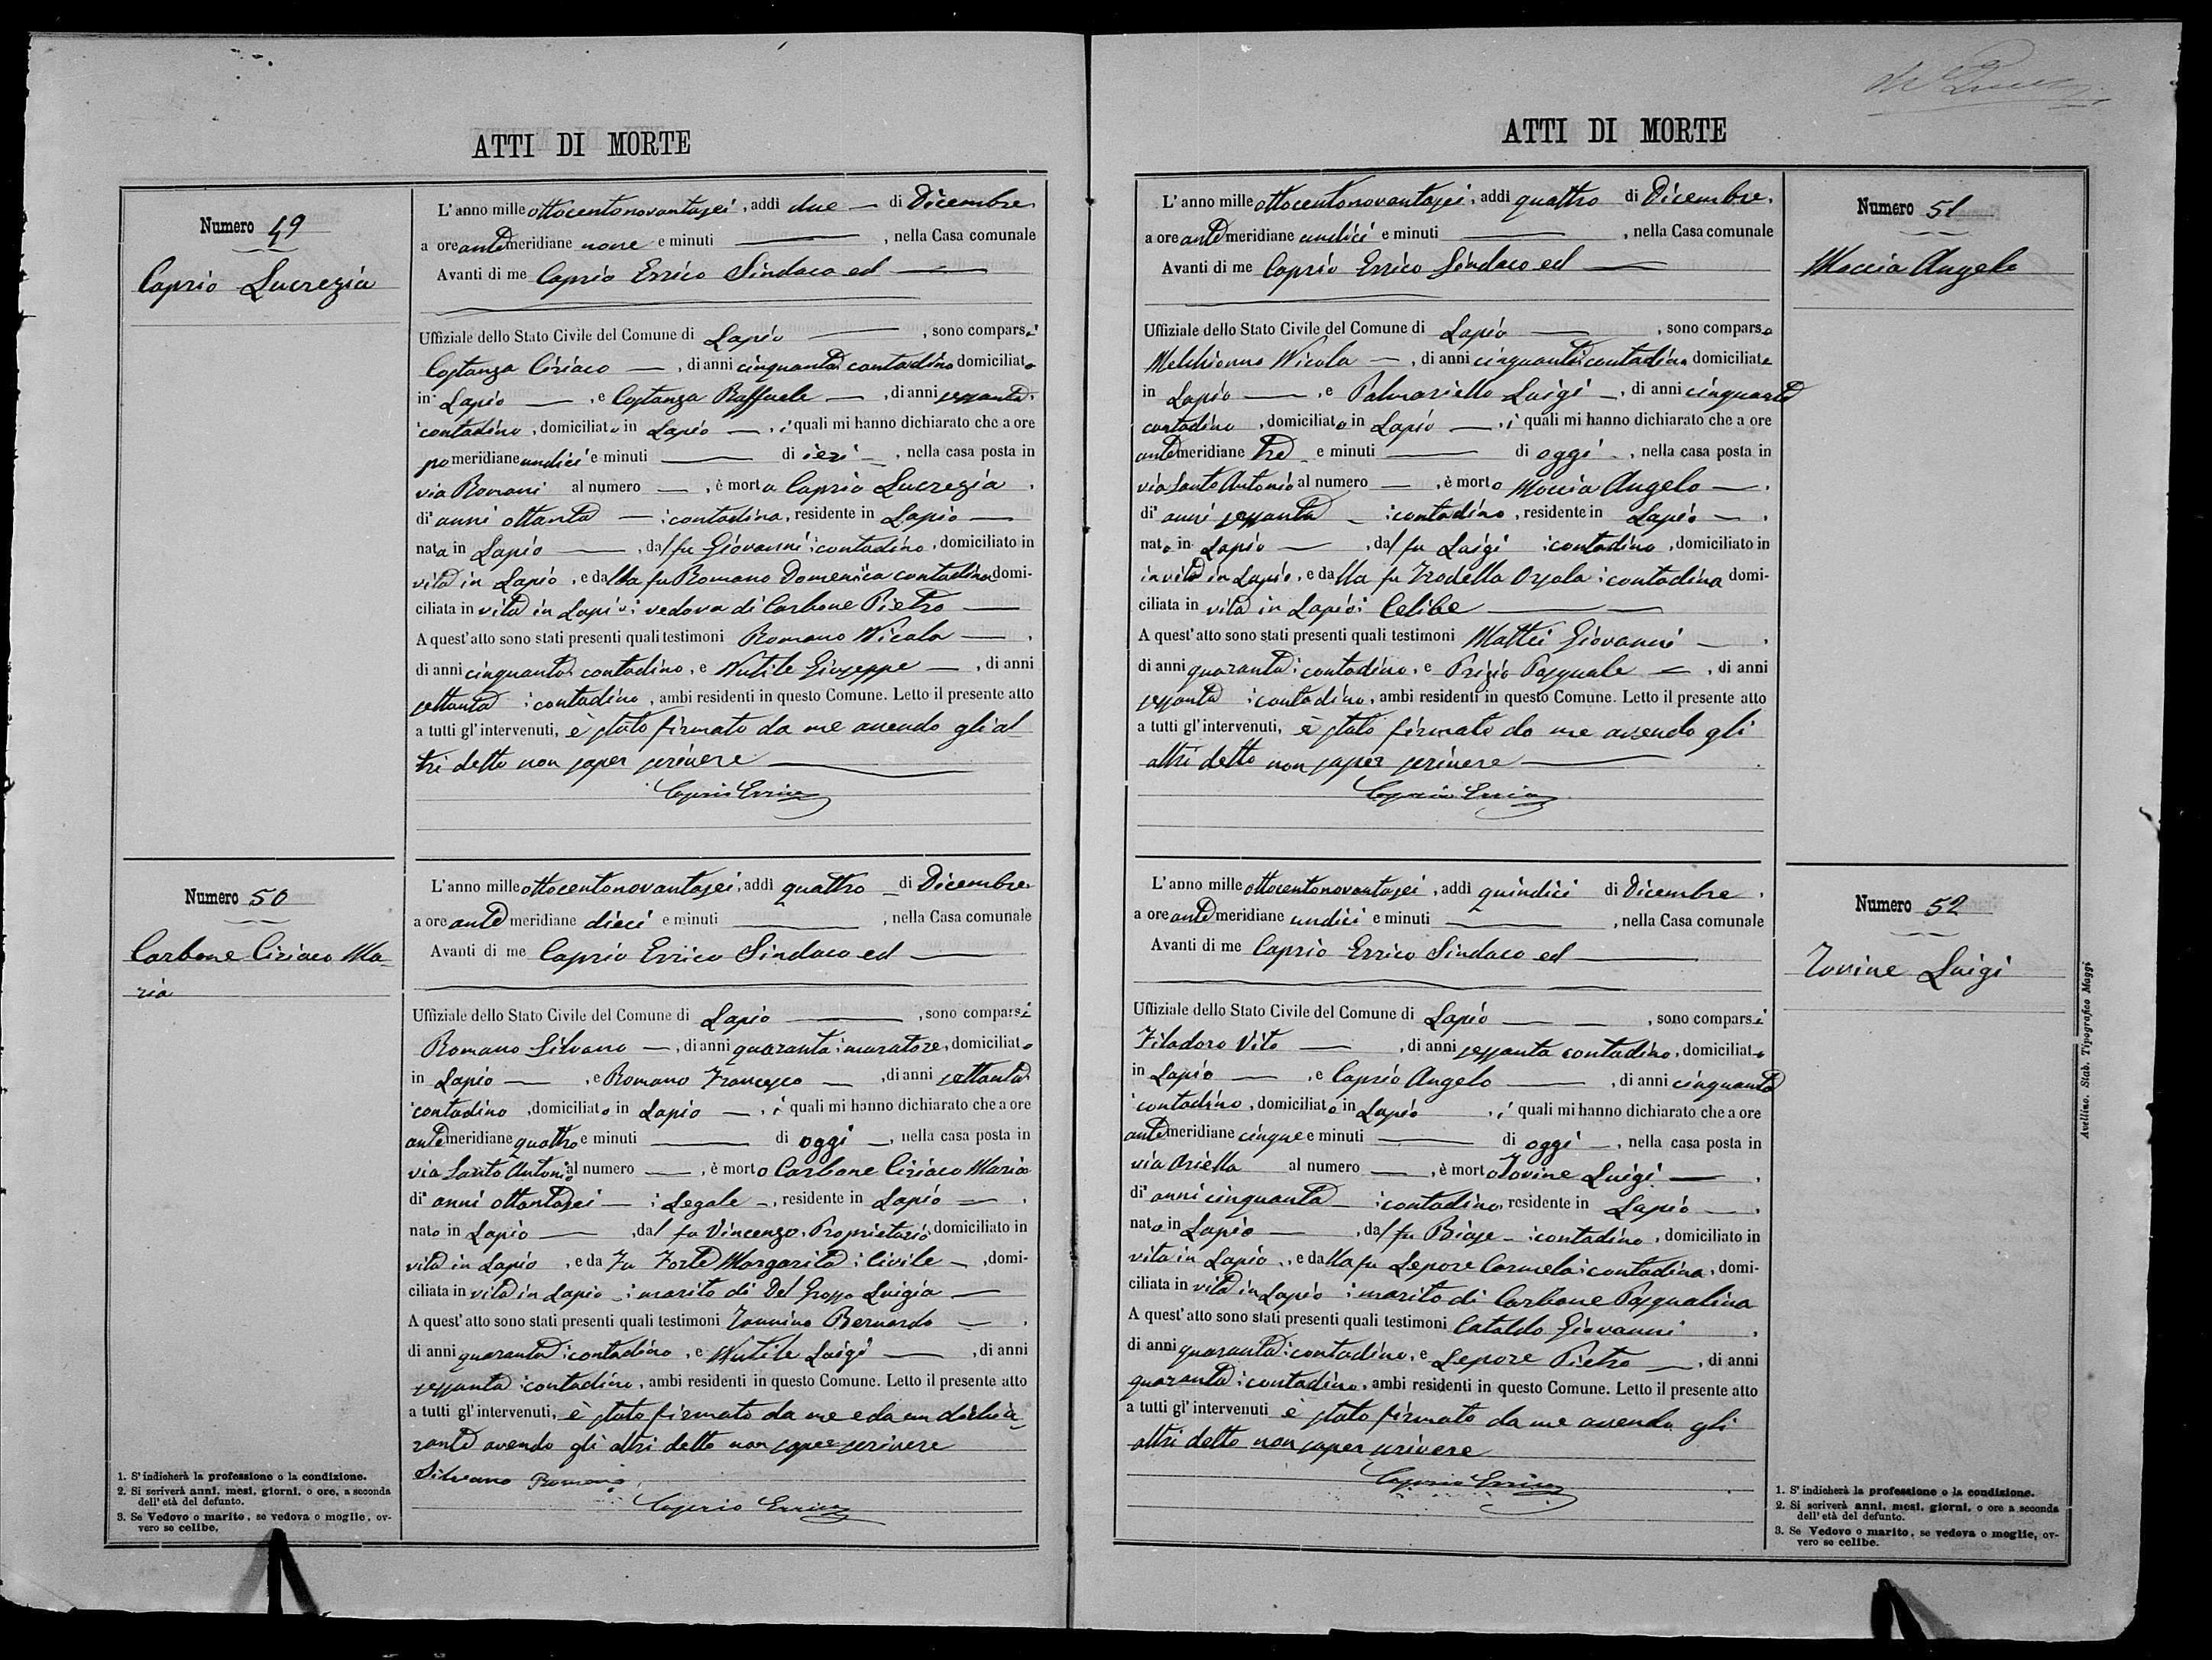 ATTI DI MORTE
Numero 49
Caprio Lucrezia
L'anno mille ottocentonovantasei, addi due — di Dicembre
a ore antemeridiane nove e minuti —, nella Casa comunale
Avanti di me Caprio Errico Sindaco ed —
Uffiziale dello Stato Civile del Comune di Lapio —, sono comparsi
Costanza Ciriaco —, di anni cinquanta contadino domiciliato
in Lapio —, e Costanza Raffaele —, di anni sessanta,
contadino, domiciliato in Lapio —, i quali mi hanno dichiarato che a ore
pomeridiane undici e minuti — di ieri —, nella casa posta in
via Romani al numero —, è morta Caprio Lucrezia,
di anni ottanta — contadina, residente in Lapio —
nata in Lapio —, dal fu Giovanni contadino, domiciliato in
vita in Lapio, e dalla fu Romano Domenica contadina domi-
ciliata in vita in Lapio; vedova di Carbone Pietro —
A quest'atto sono stati presenti quali testimoni Romano Nicola —,
di anni cinquanta contadino, e Nutile Giuseppe —, di anni
settanta contadino, ambi residenti in questo Comune. Letto il presente atto
a tutti gl'intervenuti, è stato firmato da me avendo gli al
tri detto non saper scrivere —
Caprio Errico
Numero 50
Carbone Ciriaco Ma-
ria
L'anno mille ottocentonovantasei, addi quattro — di Dicembre
a ore antemeridiane dieci e minuti —, nella Casa comunale
Avanti di me Caprio Errico Sindaco ed —
Uffiziale dello Stato Civile del Comune di Lapio —, sono comparsi
Romano Silvano —, di anni quaranta muratore, domiciliato
in Lapio —, e Romano Francesco —, di anni settanta
contadino, domiciliato in Lapio —, i quali mi hanno dichiarato che a ore
antemeridiane quattro e minuti — di oggi —, nella casa posta in
via Santo Antonio al numero —, è morto Carbone Ciriaco Maria
di anni ottantasei — Legale —, residente in Lapio —,
nato in Lapio —, dal fu Vincenzo, Proprietario, domiciliato in
vita in Lapio, e da Fu Forte Margarita; Civile —, domi-
ciliata in vita in Lapio; marito di Del Grosso Luigia —
A quest'atto sono stati presenti quali testimoni Iannino Bernardo —,
di anni quaranta contadino, e Nutile Luigi —, di anni
sessanta contadino, ambi residenti in questo Comune. Letto il presente atto
a tutti gl'intervenuti, è stato firmato da me e da un dichia-
rante avendo gli altri detto non saper scrivere
Silvano Romano
Caprio Errico
1. S'indicherà la professione o la condizione.
2. Si scriverà anni, mesi, giorni, o ore, a seconda
dell'età del defunto.
3. Se Vedovo o marito, se vedova o moglie, ov-
vero se celibe.
ATTI DI MORTE
Numero 51
Moccia Angelo
L'anno mille ottocentonovantasei, addi quattro di Dicembre,
a ore antemeridiane undici e minuti —, nella Casa comunale
Avanti di me Caprio Errico Sindaco ed —
Uffiziale dello Stato Civile del Comune di Lapio —, sono comparso
Melchionno Nicola —, di anni cinquanta contadino domiciliato
in Lapio —, e Palmariello Luigi —, di anni cinquanta
contadino, domiciliato in Lapio —, i quali mi hanno dichiarato che a ore
antemeridiane tre e minuti — di oggi —, nella casa posta in
via Santo Antonio al numero —, è morto Moccia Angelo —,
di anni sessanta — contadino, residente in Lapio —,
nato in Lapio —, dal fu Luigi contadino, domiciliato in
in vita in Lapio, e dalla fu Trodella Orsola contadina domi-
ciliata in vita in Lapio; Celibe —
A quest'atto sono stati presenti quali testimoni Mattei Giovanni —,
di anni quaranta contadino, e Prizio Pasquale —, di anni
sessanta contadino, ambi residenti in questo Comune. Letto il presente atto
a tutti gl'intervenuti, è stato firmato da me avendo gli
altri detto non saper scrivere —
Caprio Errico
Numero 52
Iovine Luigi
L'anno mille ottocentonovantasei, addi quindici di Dicembre,
a ore antemeridiane undici e minuti —, nella Casa comunale
Avanti di me Caprio Errico Sindaco ed —
Uffiziale dello Stato Civile del Comune di Lapio —, sono comparsi
Filadoro Vito —, di anni sessanta contadino, domiciliato
in Lapio —, e Caprio Angelo —, di anni cinquanta
contadino, domiciliato in Lapio, i quali mi hanno dichiarato che a ore
antemeridiane cinque e minuti — di oggi —, nella casa posta in
via Ariella al numero —, è morto Iovine Luigi —,
di anni cinquanta — contadino residente in Lapio —,
nato in Lapio —, dal fu Biase — contadino, domiciliato in
vita in Lapio, e dalla fu Lepore Carmela contadina, domi-
ciliata in vita in Lapio; marito di Carbone Pasqualina
A quest'atto sono stati presenti quali testimoni Cataldo Giovanni,
di anni quaranta contadino, e Lepore Pietro —, di anni
quaranta contadino, ambi residenti in questo Comune. Letto il presente atto
a tutti gl'intervenuti è stato firmato da me avendo gli
altri detto non saper scrivere
Caprio Errico
1. S'indicherà la professione o la condizione.
2. Si scriverà anni, mesi, giorni, o ore a seconda
dell'età del defunto.
3. Se Vedovo o marito, se vedova o moglie, ov-
vero se celibe.
Avellino. Stab. Tipografico Maggi